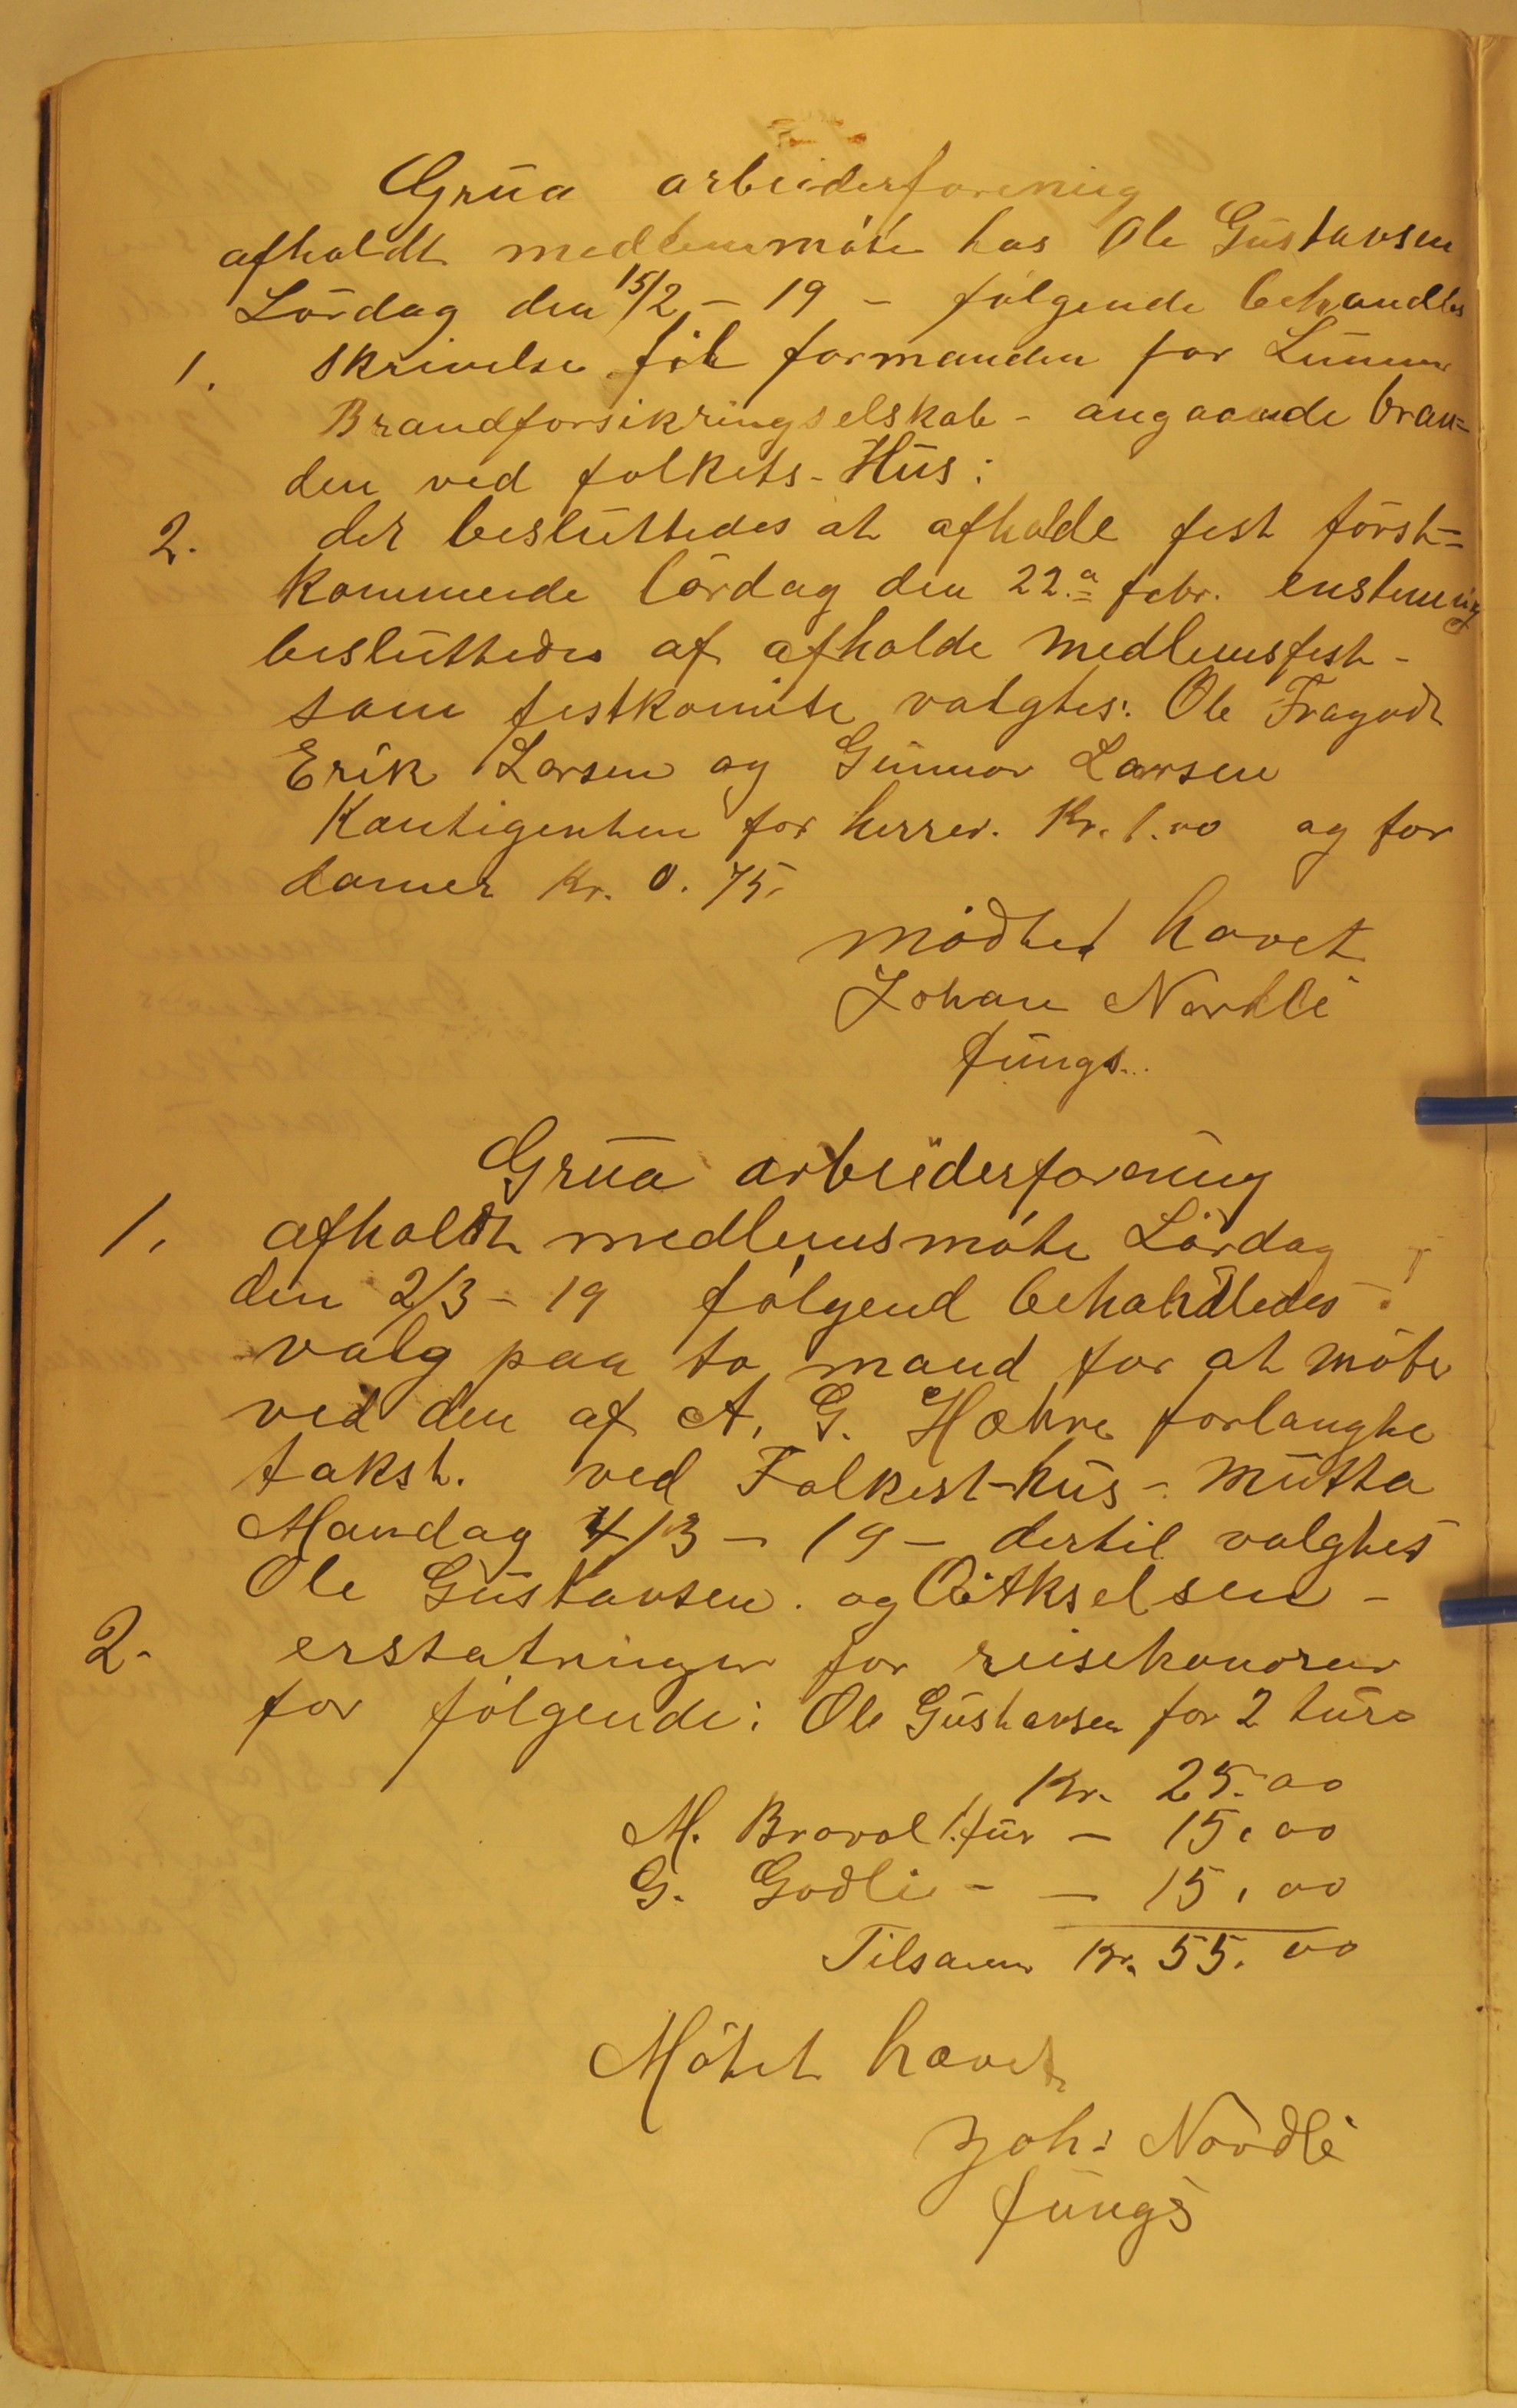 Grua arbeiderforening
afholdt medlemmøte hos Ole Gustavsen
Lördag den 15/2 - 19 - følgende behandles
1. Skrivelse til formanden for Lunner
Brandforsikringselskab - angaaende bran=
den ved folkets-Hus:
2. det besluttedes at afholde fest först=
kommende lördag den 22.a febr. enstemig
besluttedes af afholde Medlemsfest -
som festkomite valgtes: Ole Fragodt
Erik Larsen og Gunnar Larsen
Kontigenten for herrer. Kr. 1.00 og for
damer Kr. 0.75.
mødted hævet
Johan Nordli
fungs..
Grua arbeiderforening
1. afholdt medlemsmøte Lördag
den 2/3 - 19 følgend behandledes:
valg paa to mand for at møte
ved den af A. G. Hæhre forlangte
takst. ved Folkest-hus - Mutta
Mandag 4/3 - 19 - dertil valgtes
Ole Gustavsen. og Akselsen -
2. erstatninger for reisehonorar
for følgende: Ole Gustavsen for 2 ture
Kr. 25.00
M. Braval 1. tur - 15.00
G. Godli - - 15.00
Tilsamen Kr. 55.00
Møtet hævet
Joh: Nordli
fungs